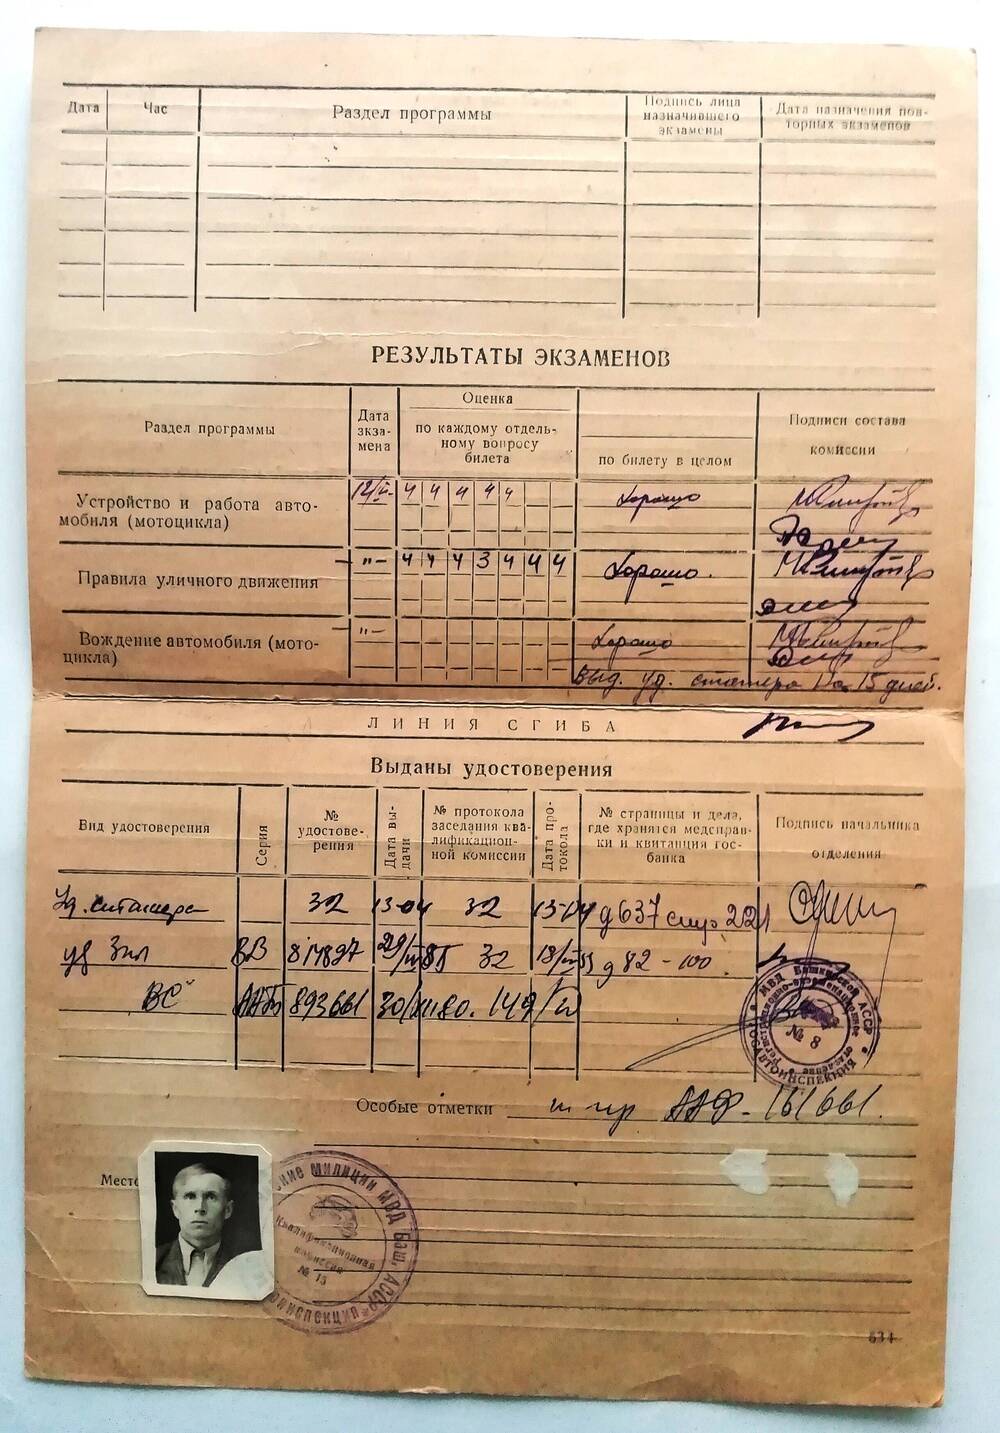 Дата Час Раздел программы Подпись лица назначившего экзамены Дата назначения повторных экзаменов
РЕЗУЛЬТАТЫ ЭКЗАМЕНОВ
Раздел программы
Дата экза-
мена
Оценка
по каждому отдель-
ному вопросу
билета
по билету в целом
Подписи состава
комиссии
Устройство и работа авто-
мобиля (мотоцикла)
4 4 4 4 4
Хорошо
Правила уличного движения
-"- 4 4 4 3 4 4 4
Хорошо.
Вождение автомобиля (мото-
цикла)
-"-
Хорошо
Выд. уд. стажера на 15 дней.
ЛИНИЯ СГИБА
Выданы удостоверения
Вид удостоверения
Серия
№
удостове-
рения
Дата вы-
дачи
№ протокола
заседания ква-
лификацион-
ной комиссии
Дата про-
токола
№ страницы и дела,
где хранятся медсправ-
ки и квитанция гос-
банка
Подпись начальника
отделения
Уд. стажера 32 13-04 32 13-04 д 637 стр 221
уд 3кл ВВ 817827 32 д 82 - 100
"ВС" ААБ 893661 149
МВД Башкирской АССР
ГОСАВТОИНСПЕКЦИЯ
№ 8
Особые отметки ААФ - 161661.
Место
милиции МВД Баш. АССР
Квалификационная
комиссия
№ 15
634